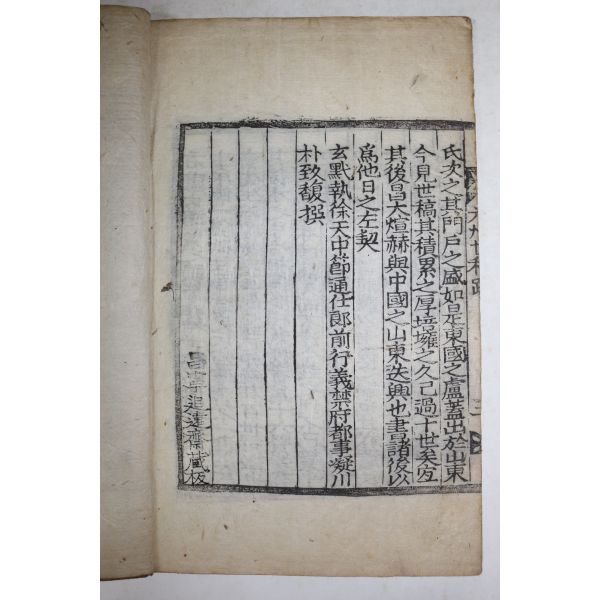 世稿跋
氏次之其門戶之盛如是東國之盧蓋出於山東
今見世稿其積累之厚培壅之久已過十世矣宜
其後昌大煊赫與中國之山東迭興也書諸後以
爲他日之左契
玄黓執徐天中節通仕郎前行義禁府都事凝川
朴致馥撰
昌寧追遠齋藏板